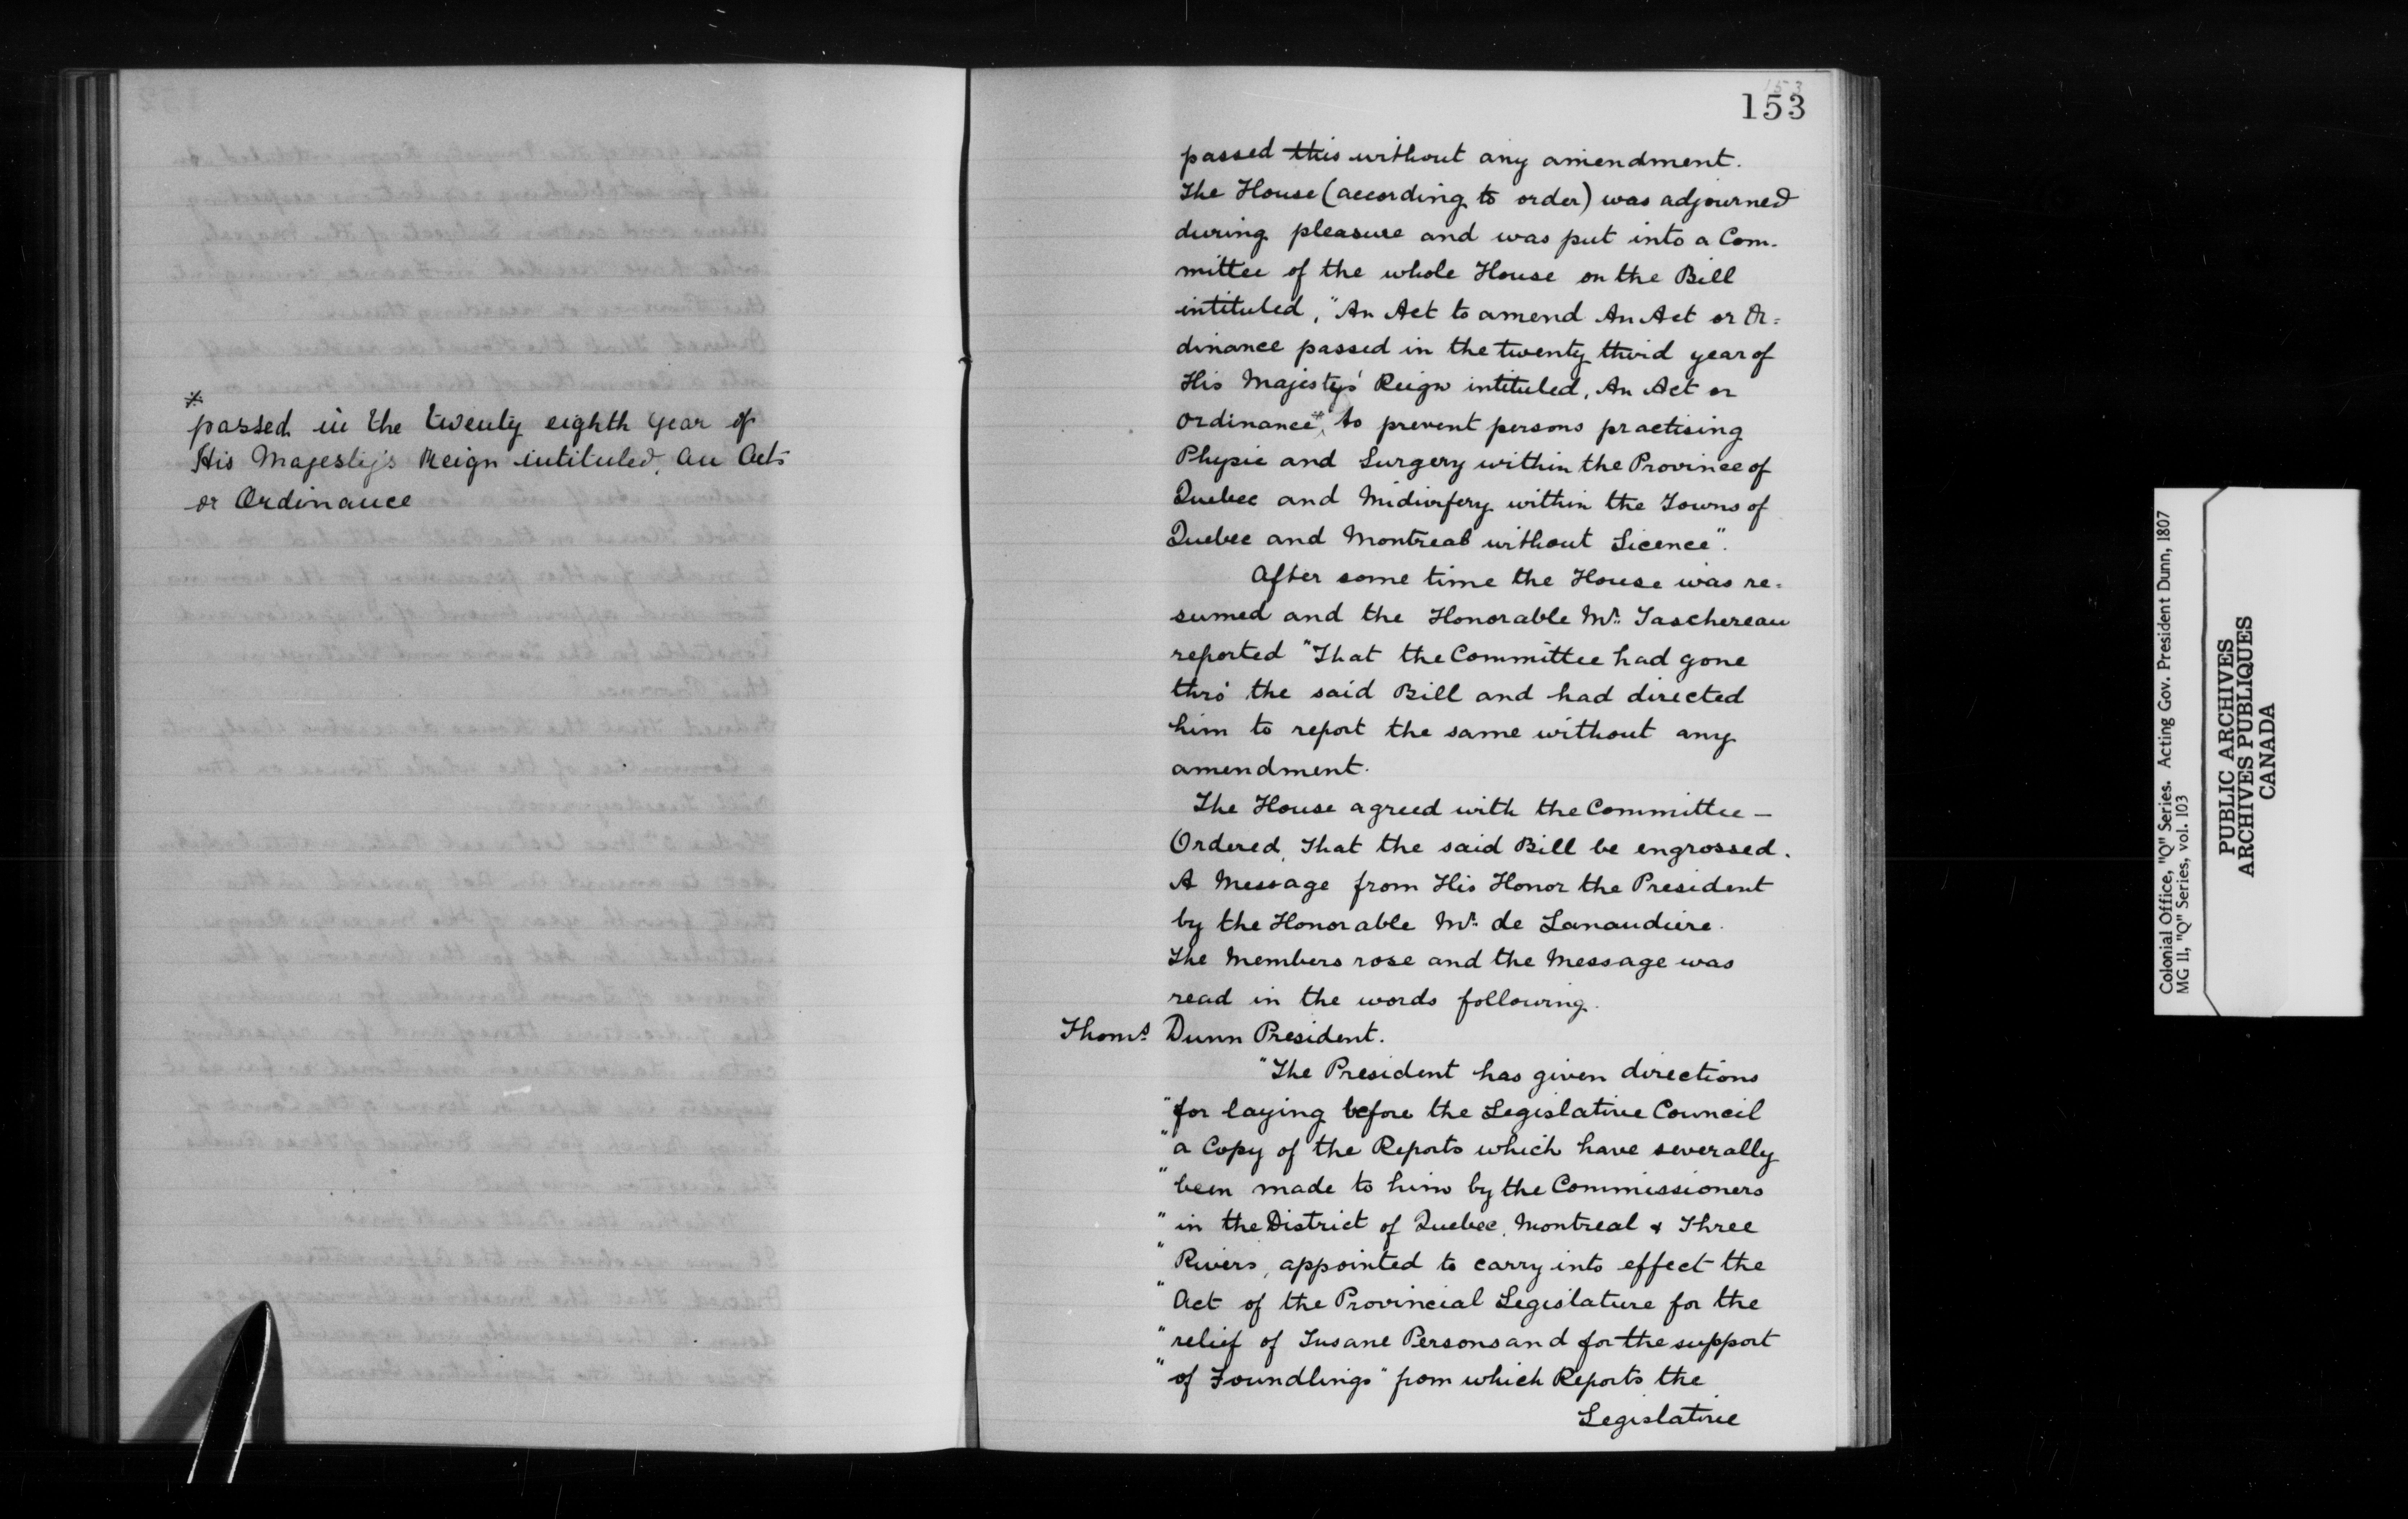 *
passed in the twenty eighth year of
His Majesty's Reign intituled, An Act
or Ordinance
153
153
passed this without any amendment.
The House (according to order) was adjourned
during pleasure and was put into a Com-
mittee of the whole House on the Bill
intituled, "An Act to amend An Act or Or=
dinance passed in the twenty third year of
His Majestys' Reign intituled, An Act or
Ordinance* to prevent persons practising
Physic and Surgery within the Province of
Quebec and Midwifery within the Towns of
Quebec and Montreal without Licence".
After some time the House was re-
sumed and the Honorable Mr. Taschereau
reported "That the Committee had gone
thro' the said Bill and had directed
him to report the same without any
amendment.
The House agreed with the Committee —
Ordered, That the said Bill be engrossed.
A Message from His Honor the President
by the Honorable Mr. de Lanaudiere.
The Members rose and the Message was
read in the words following.
Thoms. Dunn President.
"The President has given directions
"for laying before the Legislative Council
"a Copy of the Reports which have severally
"been made to him by the Commissioners
"in the District of Quebec, Montreal & Three
"Rivers, appointed to carry into effect the
"Act of the Provincial Legislature for the
"relief of Insane Persons and for the support
"of Foundlings" from which Reports the
Legislative
Colonial Office, "Q" Series. Acting Gov. President Dunn, 1807
MG 11, "Q" Series, vol. 103
PUBLIC ARCHIVES
ARCHIVES PUBLIQUES
CANADA